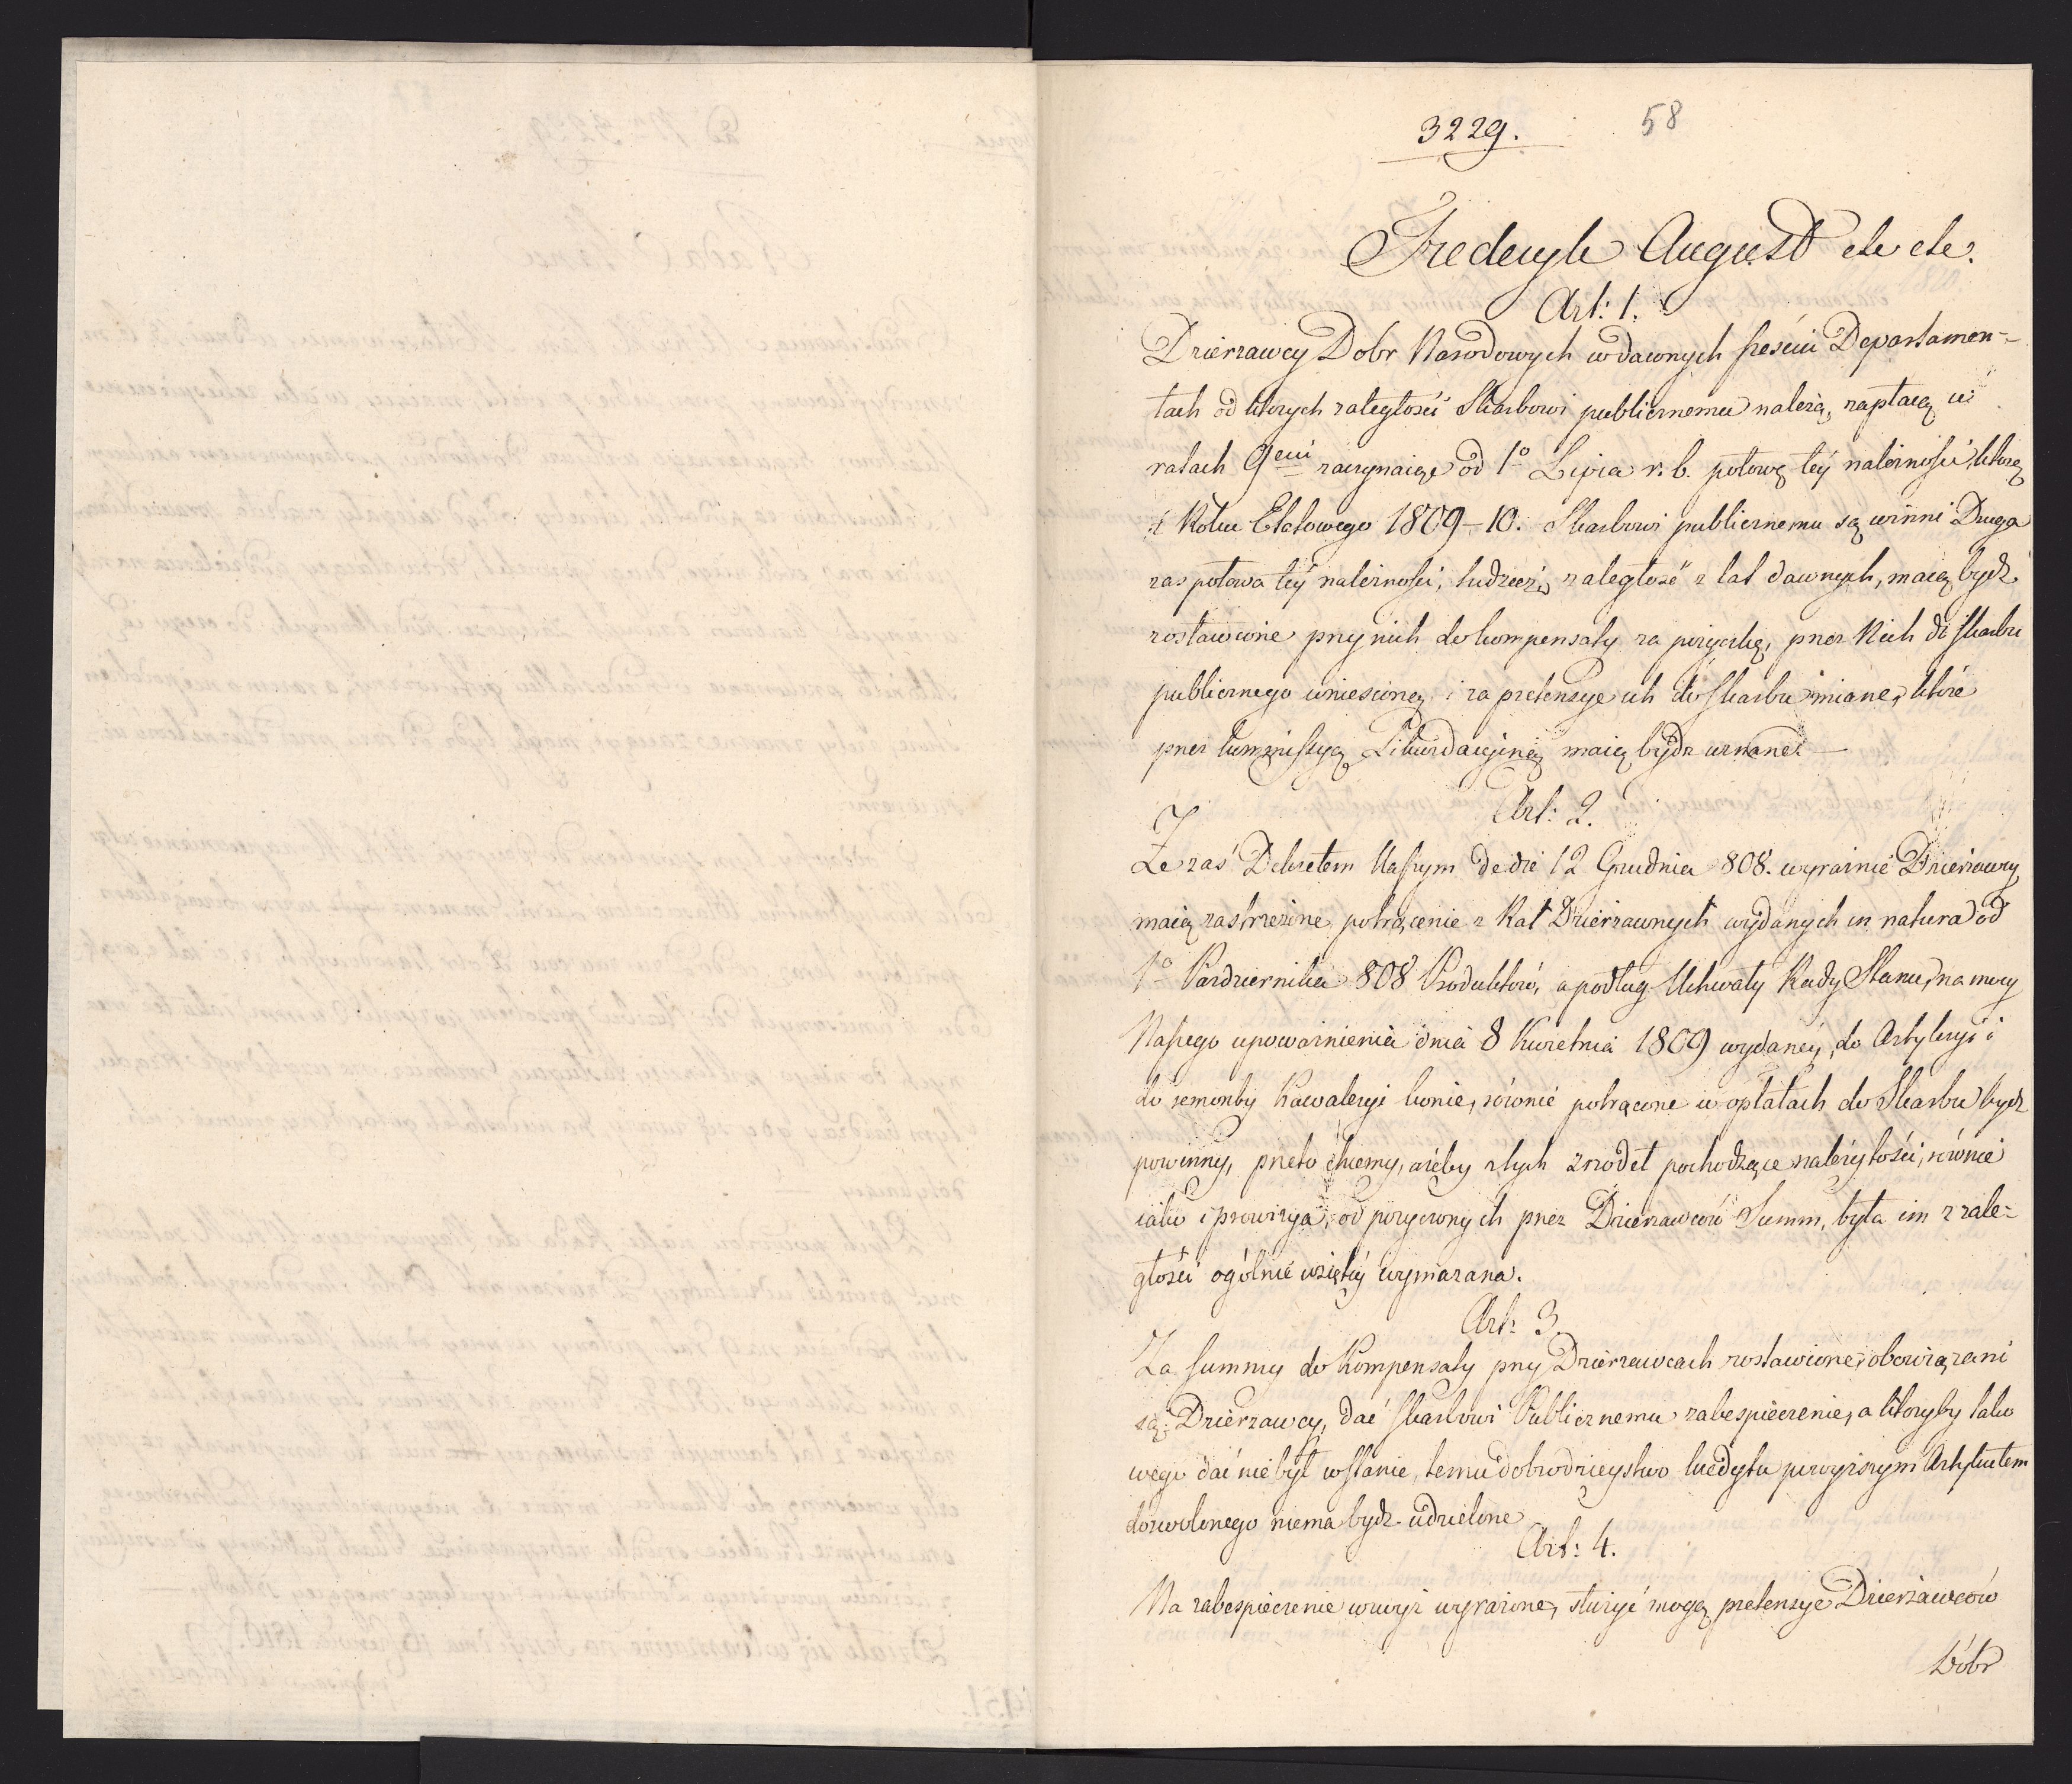 3229. 58
Frederyk August etc etc.
Art: 1.
Dzierzawcy Dobr Narodowych w dawnych sześciu Departamen-
tach od ktorych zaległości Skarbowi publicznemu należą, zapłacą w
ratach 9ciu zaczynaiąc od 1o Lipca r. b. połowę tey należności, którą
z Roku Etatowego 1809-10. Skarbowi publicznemu są winni Druga
zas połowa tey należności, tudzież zaległość z lat dawnych, maią bydz
zostawione przy nich do kompensaty za pożyczkę, przez Nich do skarbu
publicznego wniesioną, i za pretensye ich do skarbu miane, które
przez Likwidacyiną maią bydz uznane.
Art: 2.
Ze zaś Dekretem Naszym de die 12 Grudnia 808. wyraźnie Dzierzawcy
maią zastrzeżone potrącenie z Rat Dzierzawnych wydanych in natura od
1o Października 808 Produktów, a podług Uchwały Rady Stanu, na mocy
Naszego upoważnienia dnia 8 Kwietnia 1809 wydaney, do Artyleryi i
do remonty Kawaleryi konie, równie potrącone w opłatach do Skarbu bydz
powinny, przeto chcemy, ażeby z tych zrodeł pochodzące należytości, równie
iako i prowizya, od pożyczonych przez Dzierzawców Summ, była im z zale-
głości ogólnie wziętey wymazana.
Art: 3
Za summy do Kompensaty przy Dzierzawcach zostawione, obowiązani
są Dzierzawcy, dać skarbowi Publicznemu zabespieczenie, a ktoryby tako
wego dać nie był wstanie, temu dobrodzieystwo kredytu powyższym Artykułem
dozwolonego niema bydz udzielone
Art: 4.
Na zabespieczenie wwyż wyrażone, służyć mogą pretensye Dzierżawców
Dóbr